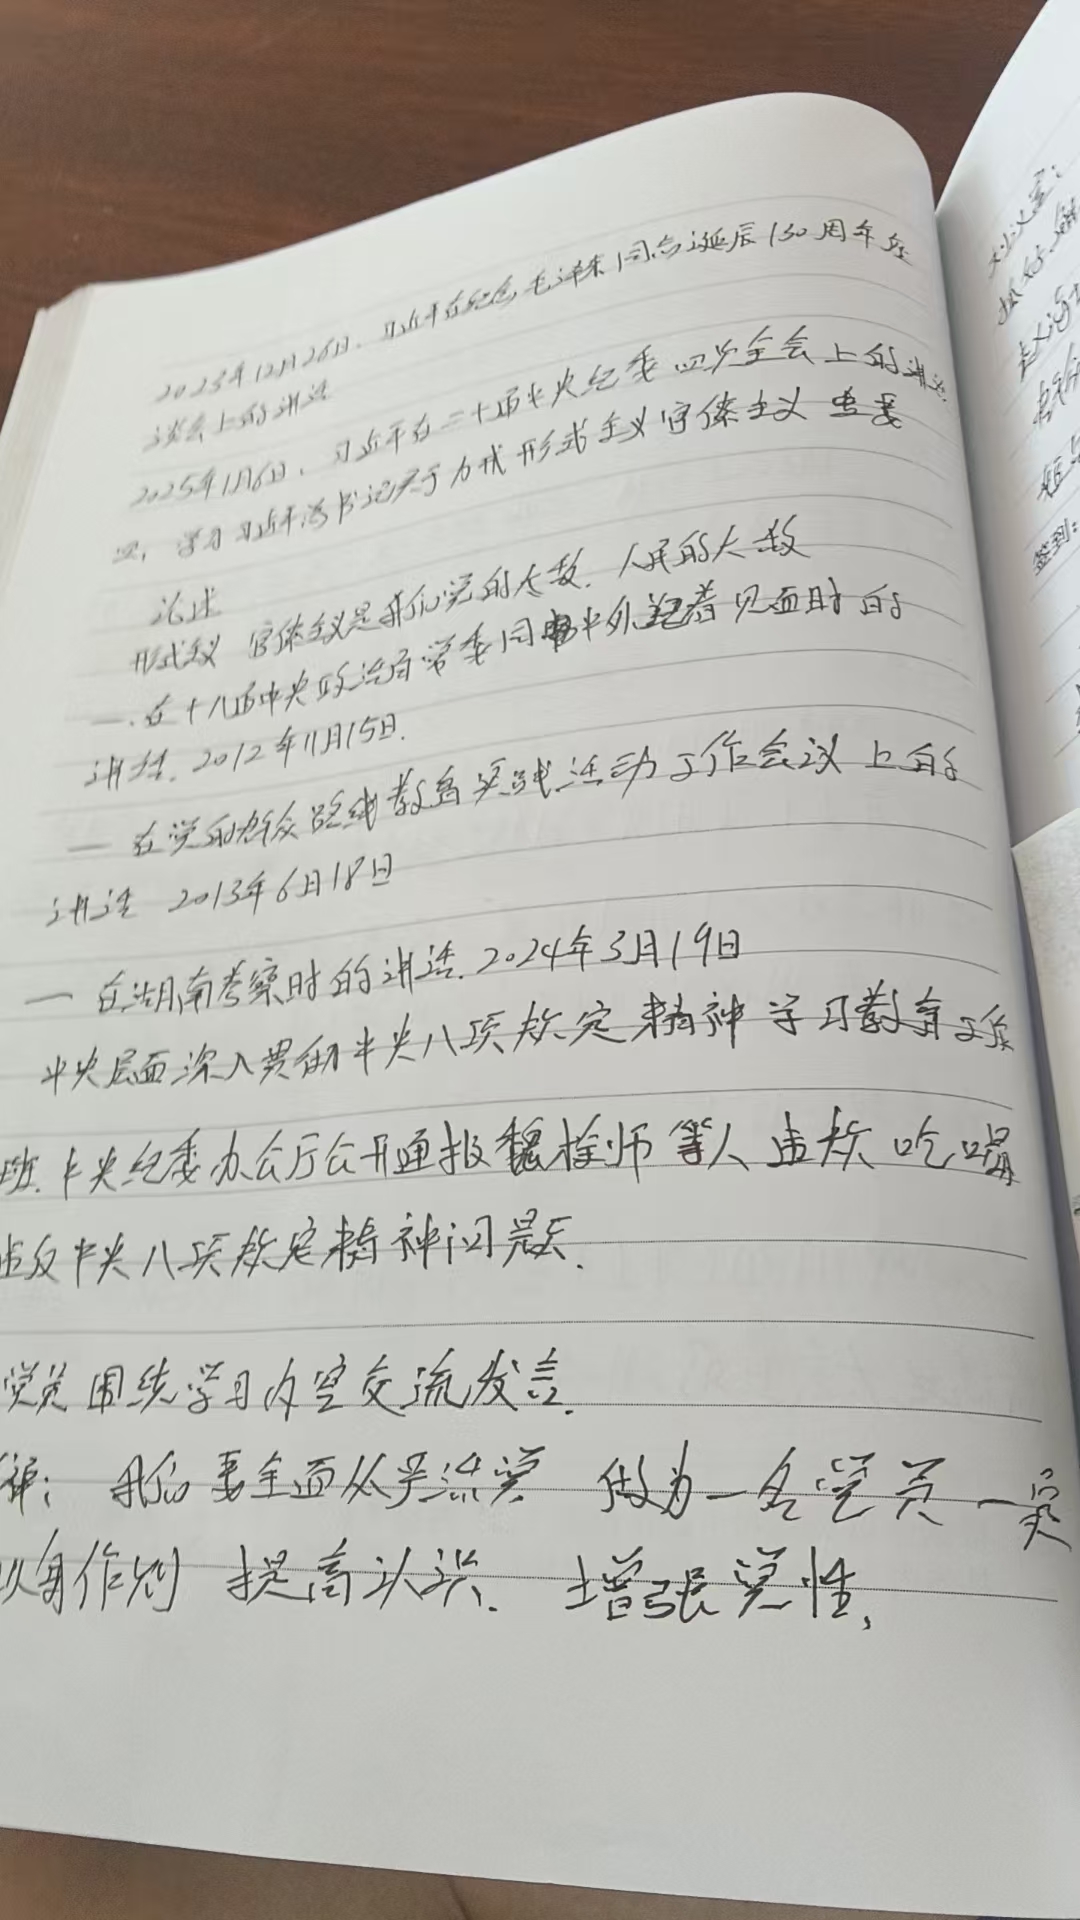 2023年12月26日、习近平在纪念毛泽东同志诞辰130周年座
谈会上的讲话
2025年1月6日、习近平在二十届中央纪委四次全会上的讲话
四、学习习近平总书记关于力戒形式主义官僚主义重要
论述
形式主义 官僚主义是我们党的大敌、人民的大敌
一.在十八届中央政治局常委同中外记者见面时的
讲话.2012年11月15日.
一 在党的群众路线教育实践活动工作会议上的
讲话 2013年6月18日
一 在湖南考察时的讲话.2024年3月19日
中央层面深入贯彻中央八项规定精神学习教育工作专
班.中央纪委办公厅公开通报等人违规吃喝
违反中央八项规定精神问题.
党员围绕学习内容交流发言.
我们要全面从严治党 做为一名党员一定
以身作则 提高认识. 增强党性,
签到: